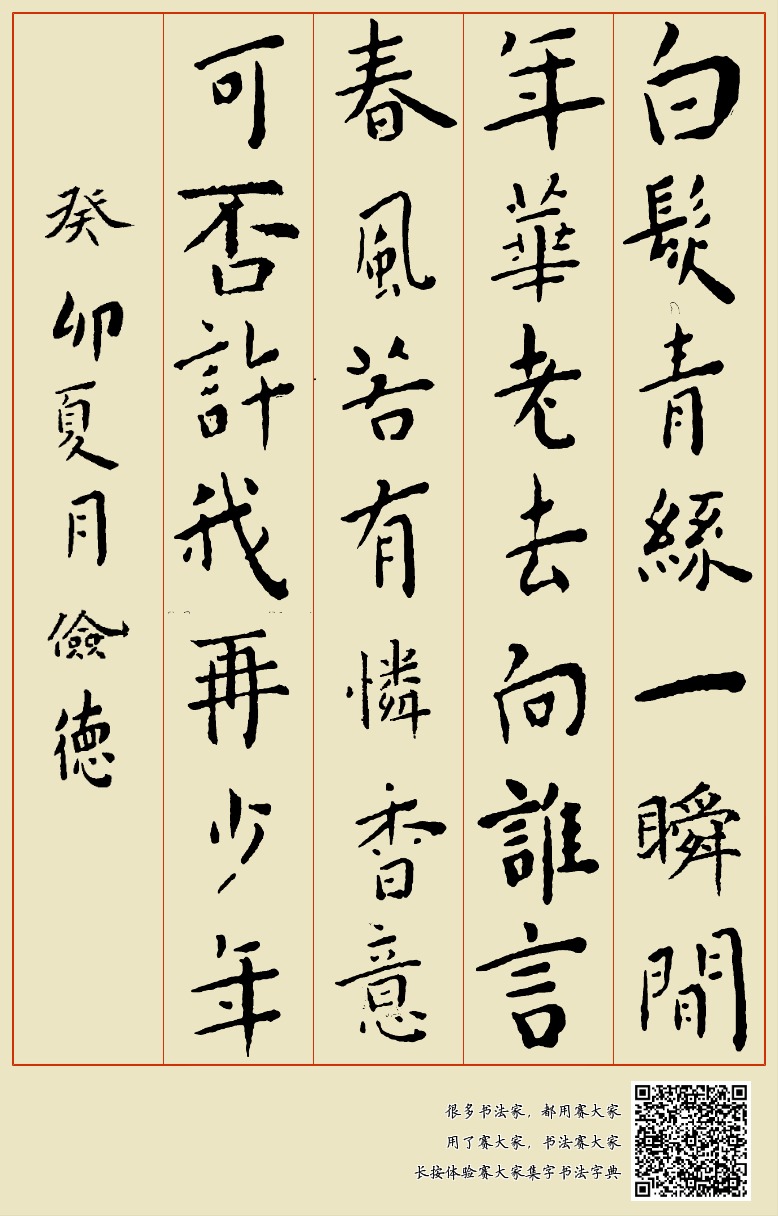 白髮青絲一瞬間
年華老去向誰言
春風若有憐香意
可否許我再少年
癸卯夏月儉德
很多书法家，都用赛大家
用了赛大家，书法赛大家
长按体验赛大家集字书法字典